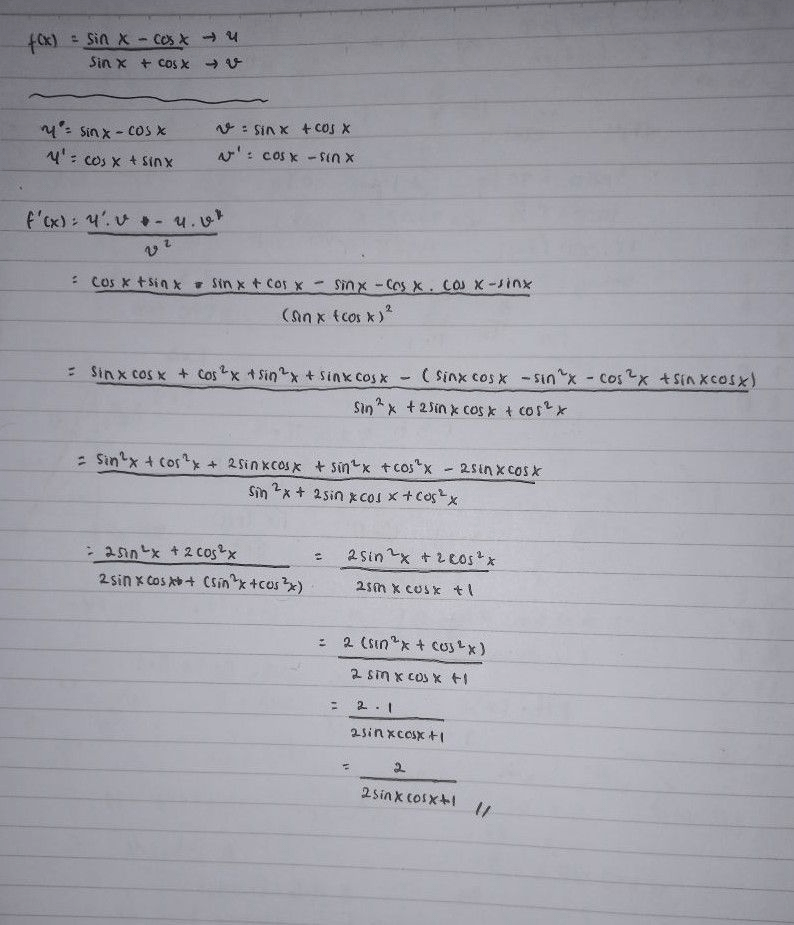 f(x) = sin x - cos x → u
sin x + cos x → v
u = sin x - cos x v = sin x + cos x
u' = cos x + sin x v' = cos x - sin x
f'(x) = u'. v - u . v'
v²
= cos x + sin x • sin x + cos x - sin x - cos x . cos x - sin x
(sin x + cos x)²
= sin x cos x + cos² x + sin² x + sin x cos x - (sin x cos x - sin² x - cos² x + sin x cos x)
sin² x + 2 sin x cos x + cos² x
= sin² x + cos² x + 2 sin x cos x + sin² x + cos² x - 2 sin x cos x
sin² x + 2 sin x cos x + cos² x
= 2 sin² x + 2 cos² x = 2 sin² x + 2 cos² x
2 sin x cos x + (sin² x + cos² x) 2 sin x cos x + 1
= 2 (sin² x + cos² x)
2 sin x cos x + 1
= 2 . 1
2 sin x cos x + 1
= 2
2 sin x cos x + 1 //